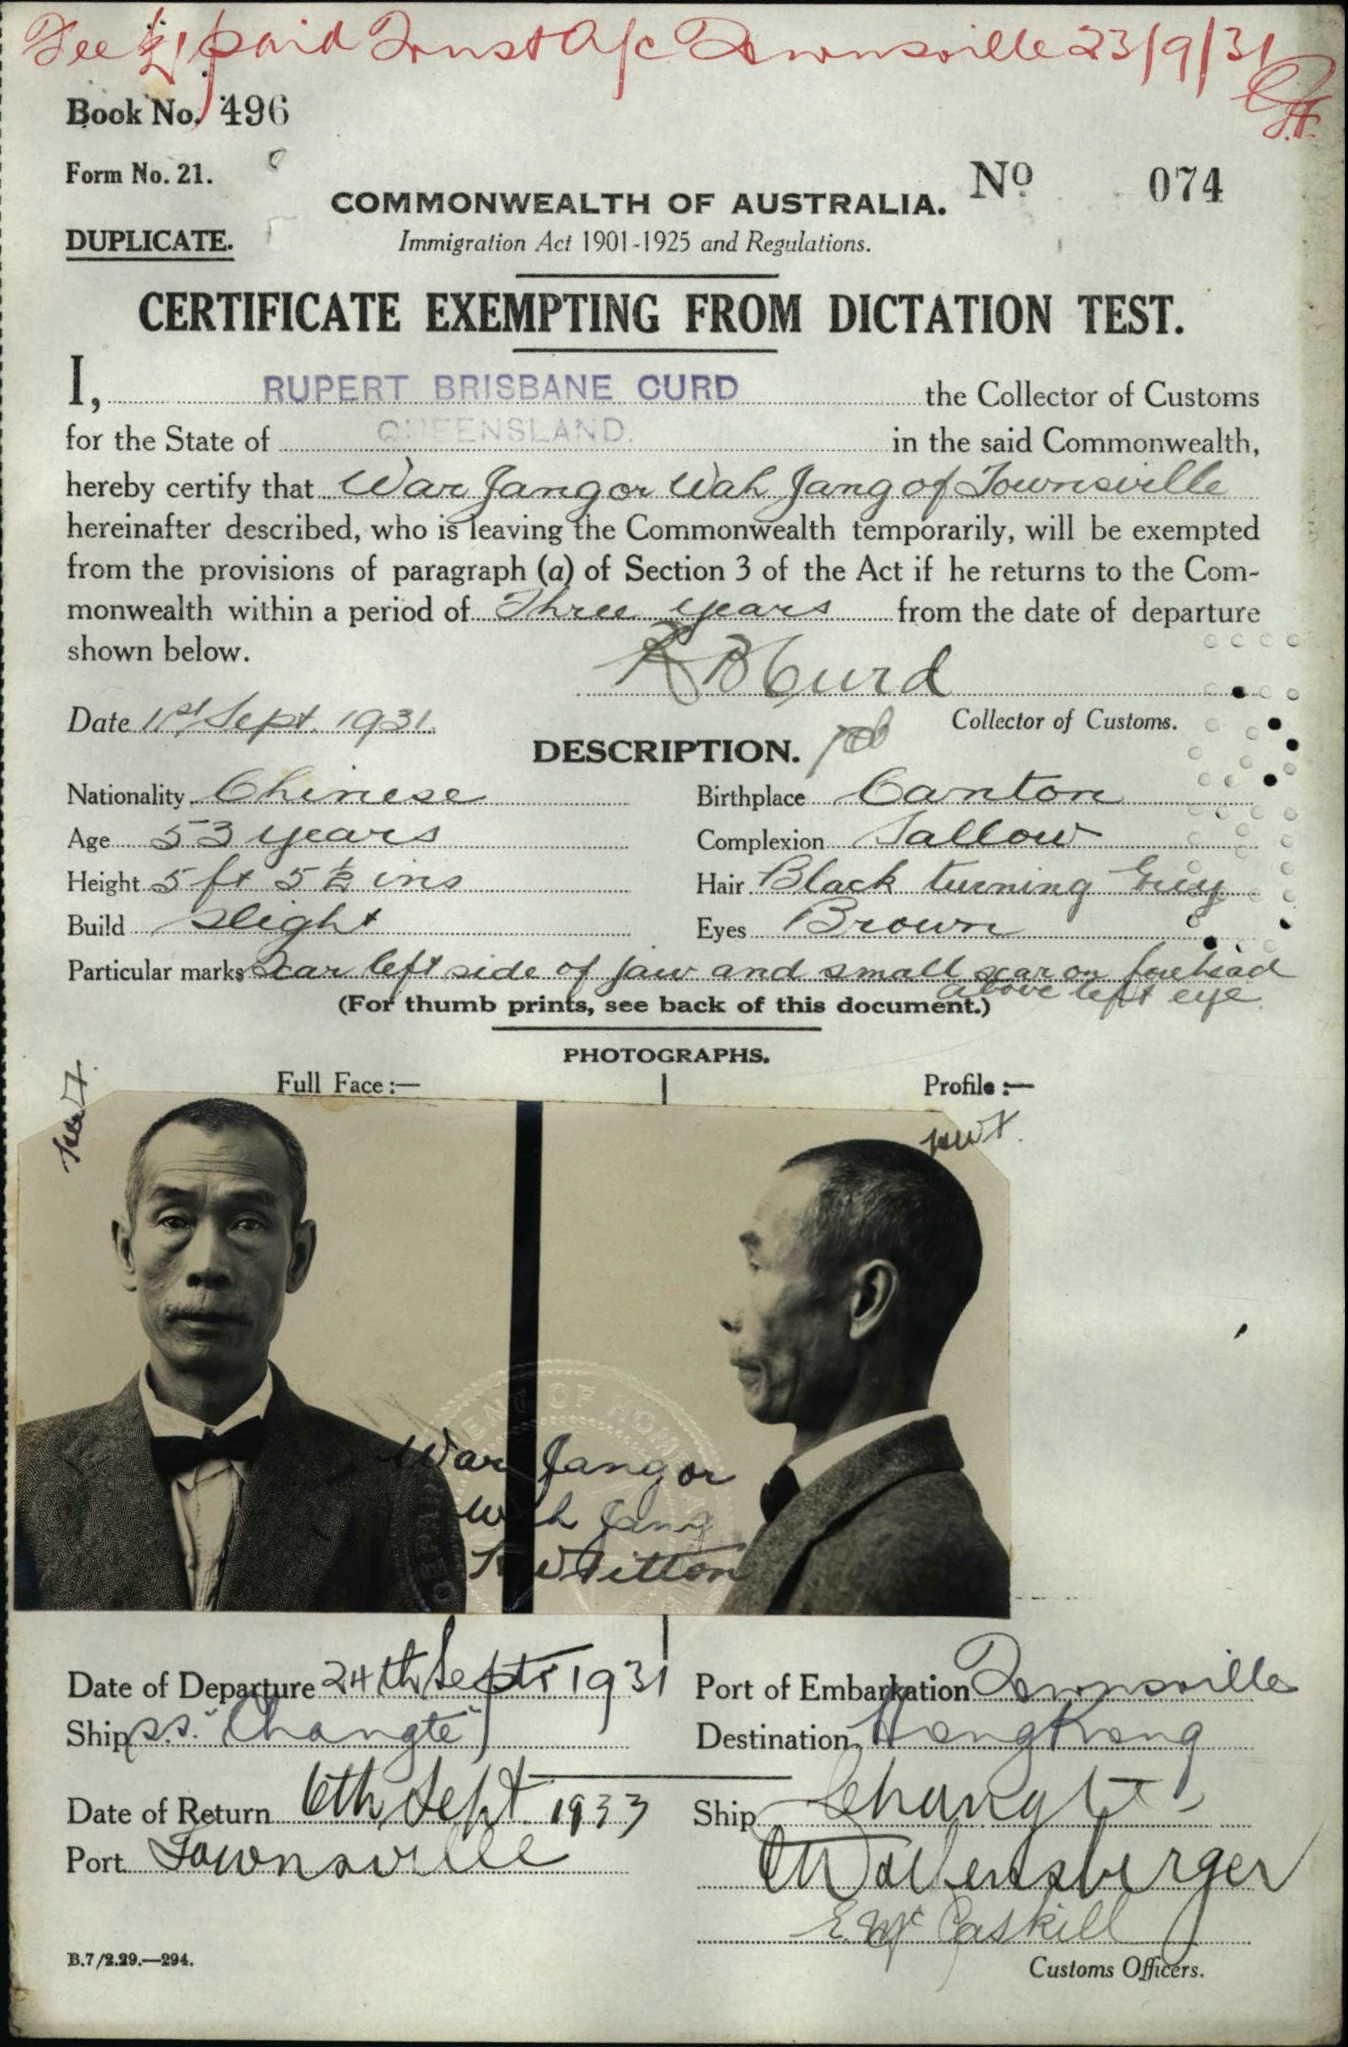 Fee £1 paid Trust A/c Townsville 23/9/31
Book No. 496
Form No. 21.
No 074
COMMONWEALTH OF AUSTRALIA.
DUPLICATE.
Immigration Act 1901-1925 and Regulations.
CERTIFICATE EXEMPTING FROM DICTATION TEST.
I, RUPERT BRISBANE CURD the Collector of Customs
for the State of QUEENSLAND. in the said Commonwealth,
hereby certify that War Jang or Wah Jang of Townsville
hereinafter described, who is leaving the Commonwealth temporarily, will be exempted
from the provisions of paragraph (a) of Section 3 of the Act if he returns to the Com-
monwealth within a period of Three years from the date of departure
shown below.
R B Curd
Date 1st Sept. 1931. Collector of Customs.
DESCRIPTION.
Nationality Chinese Birthplace Canton
Age 53 years Complexion Sallow
Height 5 ft 5 ½ ins Hair Black turning Grey
Build Slight Eyes Brown
Particular marks Scar left side of jaw and small scar on forehead
above left eye
(For thumb prints, see back of this document.)
PHOTOGRAPHS.
Full Face:— Profile:—
War Jang or
Wah Jang
Titton
Date of Departure 24th Sept 1931 Port of Embarkation Townsville
Ship s.s. "Changte" Destination Hong Kong
Date of Return 6th Sept 1933 Ship Changte
Port Townsville
E. McCaskill
B.7/2.29.—294.
Customs Officers.